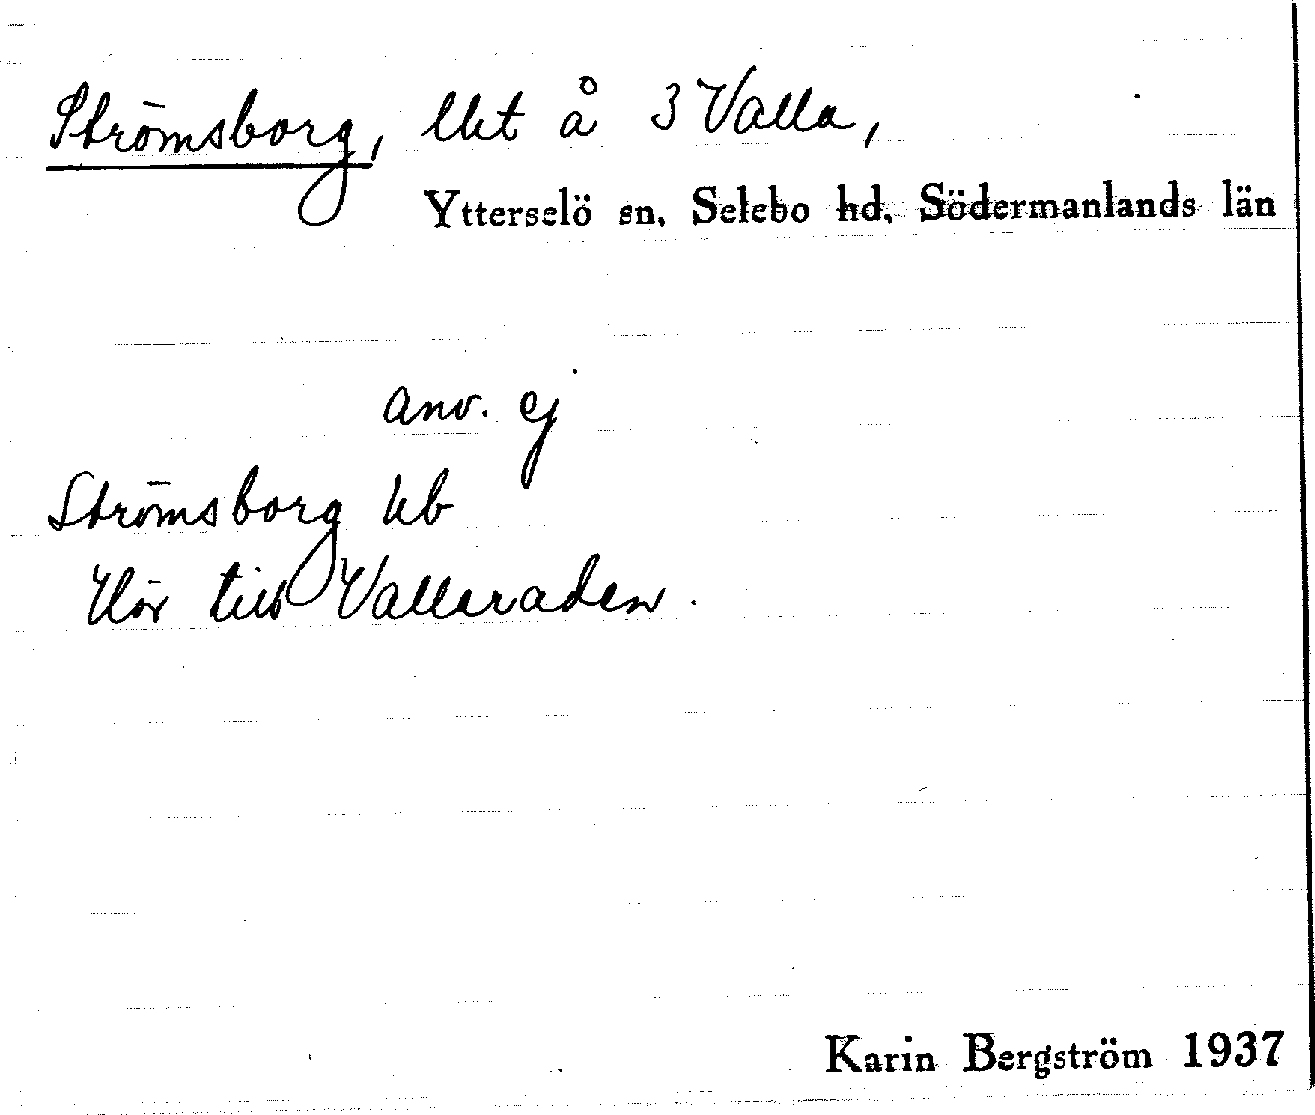 Strömsborg, lht å 3 Valla,
Ytterselö sn, Selebo hd, Södermanlands län
anv. ej
Strömsborg kb
Hör till Valleraden.
Karin Bergström 1937